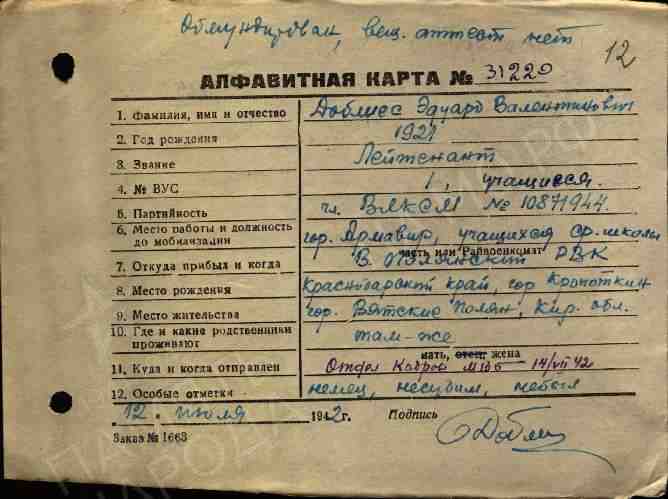 Обмундирован, вещ. аттест. нет
12
АЛФАВИТНАЯ КАРТА № 31220
1. Фамилия, имя и отчество Доблиес Эдуард Валентинович
2. Год рождения 1921
3. Звание Лейтенант
4. № ВУС 1, учащиеся.
5. Партийность чл. ВЛКСМ № 10871944.
6. Место работы и должность до мобилизации гор. Армавир, учащихся ср. школы
часть или Райвоенкомат
7. Откуда прибыл и когда В. Полянский РВК
8. Место рождения Краснодарский край, гор Кропоткин
9. Место жительства гор. Вятские Полян, Кир. обл.
10. Где и какие родственники проживают там-же
мать, отец, жена
11. Куда и когда отправлен Отдел Кадров 14/VII 42
12. Особые отметки немец, несудим, небыл
12. июля 1942г. Подпись
Заказ № 1663